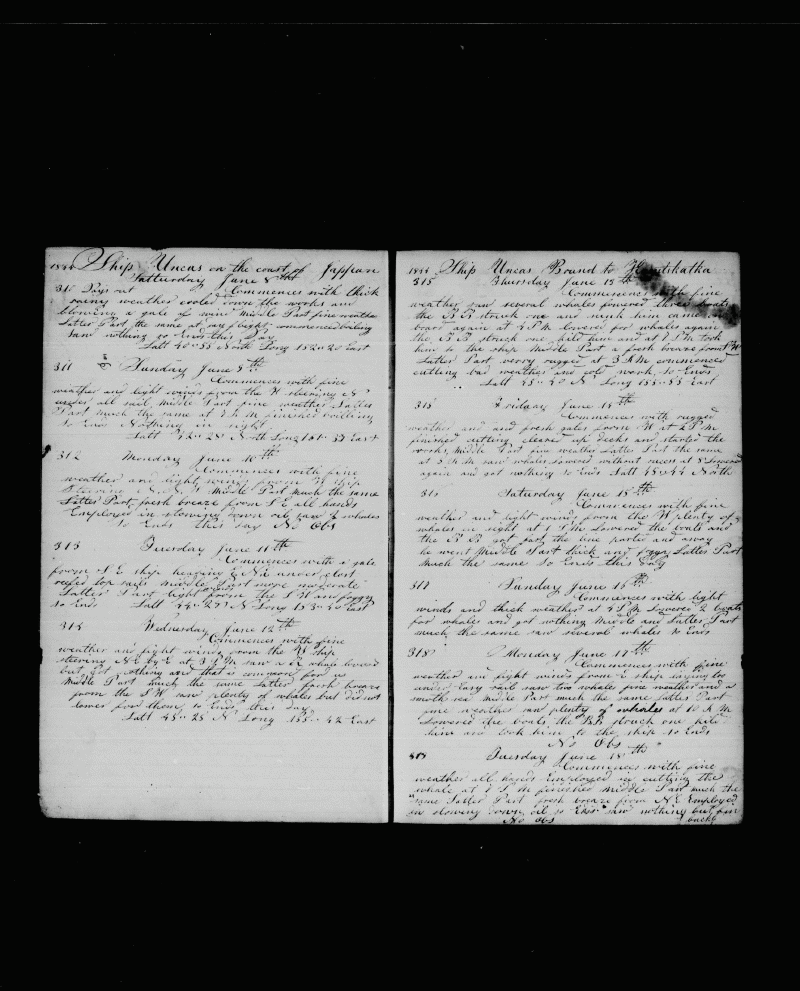 1844 Ship Uncas on the coast of Jappan
Satturday June 8th
310 Days out Commences with thick
rainy weather cooled down the works and
blowing a gale of wind Middle Part fine weather
Latter Part the same at commenced boiling
saw nothing so Ends this Day
Latt 40 " 55 North Long 152 " 20 East
311 Sunday June 9th
Commences with fine
weather and light winds from the W steering N
under all sail Middle Part fine weather Latter
Part much the same at 8 A M finished boilling
so Ends Nothing in sight
Latt 42 " 28 North Long 151 " 33 East
312 Monday June 10th
Commences with fine
weather and light winds from W ship
steering Middle Part much the same
Latter Part fresh breaze from S E all hands
Employed in stowing down oil saw 2 whales
so Ends this day No Obs
313 Tuesday June 11th
Commences with a gale
from S E ship heading E N E under close
reefed top sails Middle Part more moderate
Latter Part light winds from the S W and foggy
so Ends Latt 44 " 27 N Long 153 " 40 East
314 Wednesday June 12th
Commences with fine
weather and light winds from the W ship
steering N E by E at 3 P M saw a whale lowed
but got nothing and that is common for us
Middle Part much the same Latter fresh breaze
from the S W saw plenty of whales but did not
lower for them so Ends this day
Latt 45 " 28 N Long 155 " 42 East
1844 Ship Uncas Bound to
315 Thursday June 13th
Commences with fine
weather saw several whales lowered three boats
the B B struck one and sunk him came on
board again at 4 P M lowered for whales again
the B B struck one kild him and at 8 P M took
him to the ship Middle Part a fresh breaze from W
Latter Part verry rugged at 3 A M commenced
cutting bad weather and cold work so Ends
Latt 45 " 40 N Long 155 " 55 East
315 Friday June 14th
Commences with rugged
weather and fresh gales from W at 2 P M
finished cutting cleared up decks and started the
works Middle Part fine weather Latter Part the same
at 5 A M saw whales lowered without sucess at 8 Lowered
again and got nothing so Ends Latt 45 " 44 North
Saturday June 15th
Commences with fine
weather and light winds from the W plenty of
whales in sight at 1 P M Lowered the boats and
the B B got fast the line parted and away
he went Middle Part thick and foggy Latter Part
much the same so Ends this day
317 Sunday June 16th
Commences with light
winds and thick weather at 4 P M Lowered 2 boats
for whales and got nothing Middle and Latter Part
much the same saw several whales so Ends
318 Monday June 17th
Commences with fine
weather and light winds from E ship
under Easy sail saw two whales fine weather and a
smoth sea Middle Part much the same Latter Part
fine weather saw plenty of whales at 10 A M
Lowered the boats the BB struck one kild
him and took him to the ship so Ends
No Obs
Tuesday June 18th
Commences with fine
weather all hands Employed in cutting the
whale at 8 P M finished Middle Part much the
same Latter Part fresh breaze from N E Employed
in stowing down oil so Ends saw nothing but fin
No Obs backs